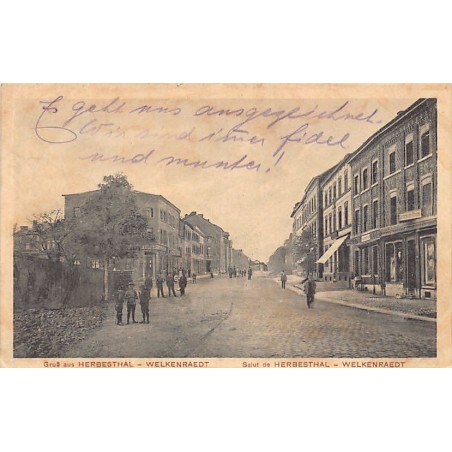 Es geht uns ausgezeichnet.
Wir sind imer fidel
und munter!
Gruß aus HERBESTHAL – WELKENRAEDT Salut de HERBESTHAL – WELKENRAEDT